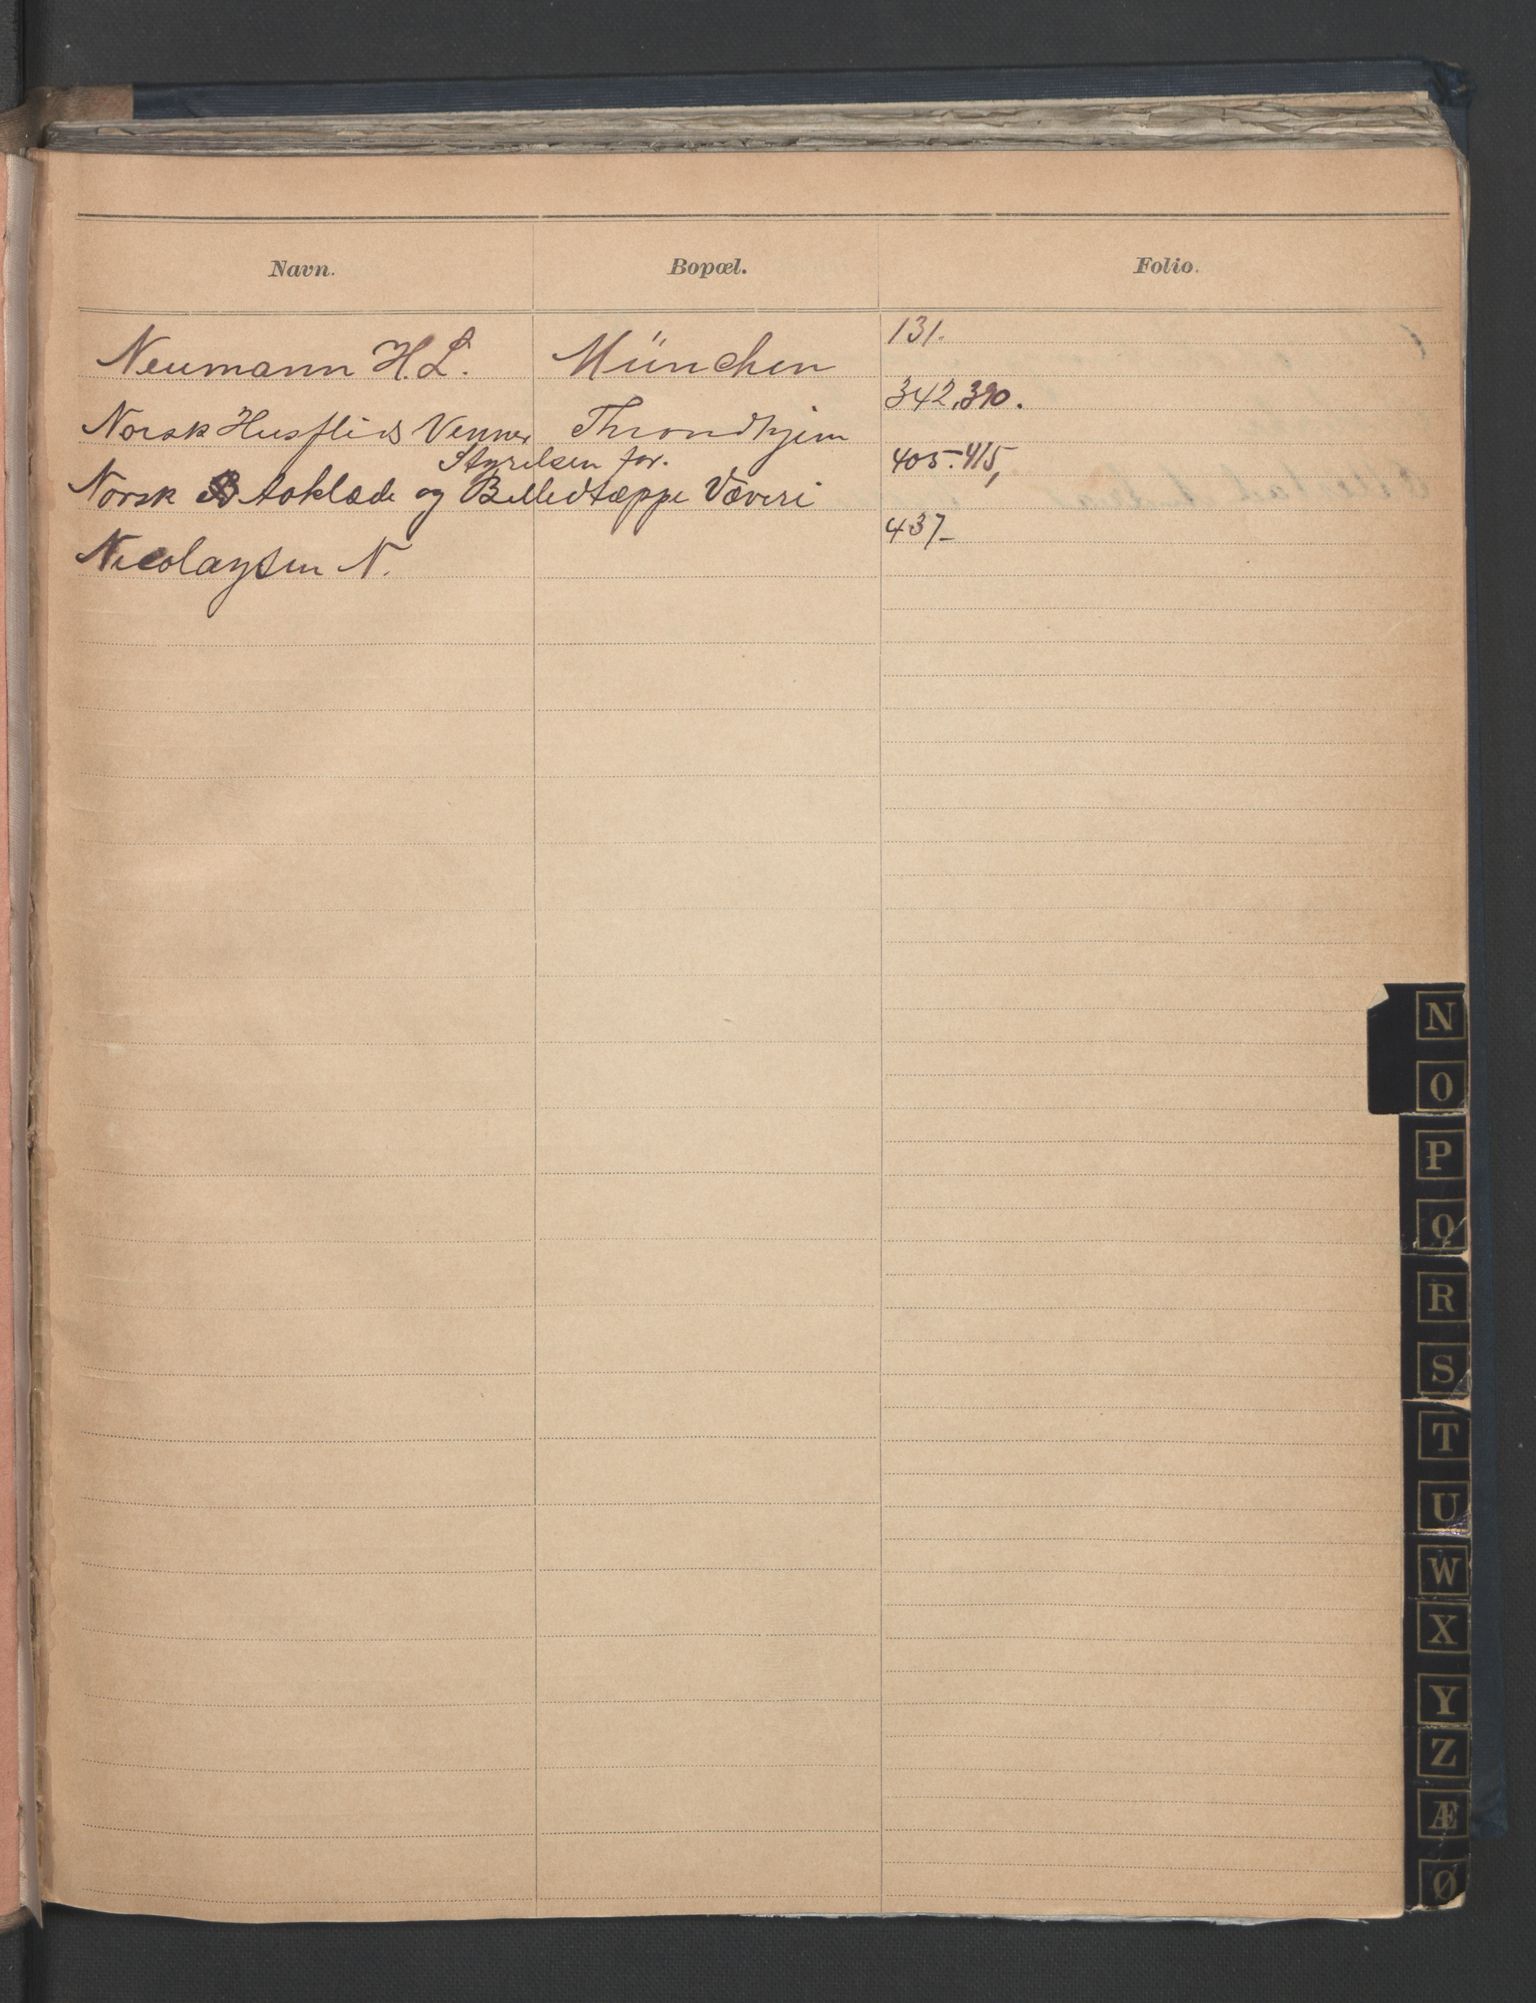 Navn. Bopæl. Folio.
Neumann H. L. München 131.
Norsk Husflids Venner Throndhjem 342, 390.
Styrelsen for.
Norsk Aaklæde og Billedtæppe Væveri 405. 415,
Nicolaysen N. 437
N
O
P
Q
R
S
T
U
W
X
Y
Z
Æ
Ø